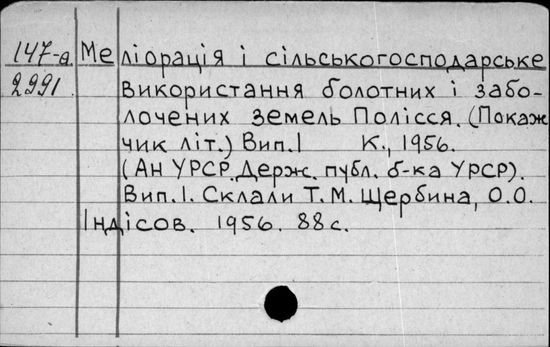 147-а Меліорація і сільськогосподарське
2991. використання болотних і забо-
лочених земель Полісся. (Покаж
чик літ.) Вип.I К., 1956.
(Ан УРСР. Держ. публ. б-ка УРСР).
Вип.I. Склали Т.М. Щербина, О.О.
Індісов. 1956. 88 с.